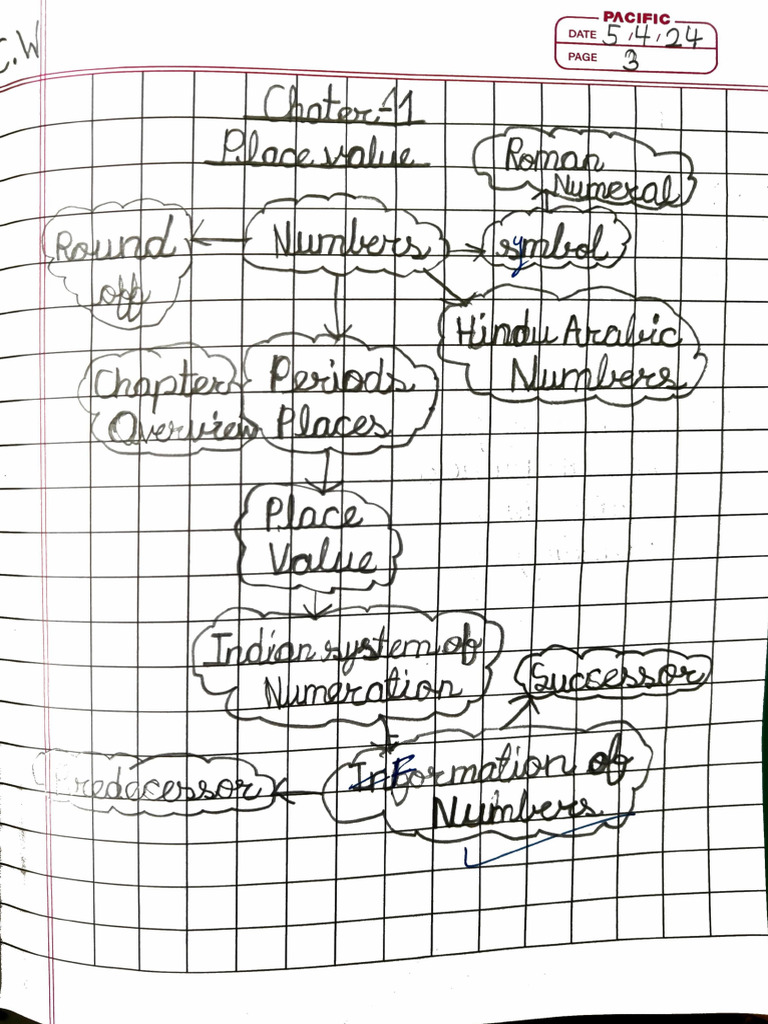 C.W
PACIFIC
DATE 5.4.24
PAGE 3
Chater-11
Place value
Roman
Numeral
Round
off
Numbers
symbol
Hindu Arabic
Numbers
Chapter
Overview
Periods
Places
Place
Value
Indian system of
Numeration
Successor
Predecessor
Information of
Numbers